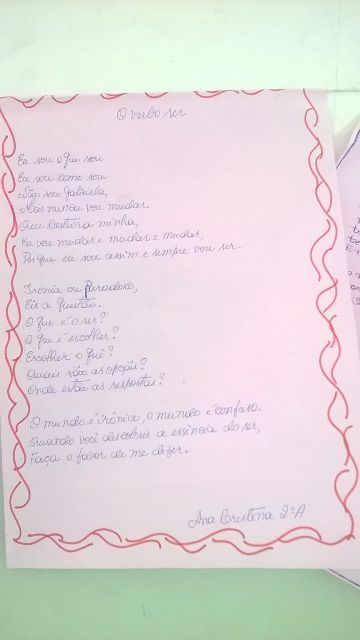 O verbo ser
Eu sou o que sou
Eu sou como sou
Não sou Gabriela,
Mas nunca vou mudar.
Que besteira minha,
Eu vou mudar e mudar e mudar,
Porque eu sou assim e sempre vou ser.
Ironia ou Paradoxo,
Eis a questão.
O que é o ser?
O que é escolher?
Escolher o quê?
Quais são as opções?
Onde estão as respostas?
O mundo é irônico, o mundo é confuso.
Quando você descobrir a essência do ser,
Faça o favor de me dizer.
Ana Cristina 2ºA